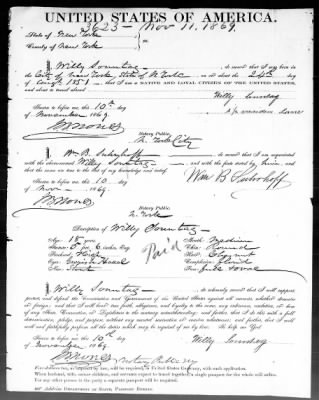 UNITED STATES OF AMERICA.
623 — Nov 11. 1869.
State of New York
County of New York
I Willy Sonntag do swear that I was born
in the City of New York State of N. York on or about the 24th day
of Augt. 1853; that I am a NATIVE AND LOYAL CITIZEN OF THE UNITED STATES,
and about to travel abroad
Willy Sonntag
Sworn to before me this 10th
day of November 1869.
Notary Public
N. York City
I, Wm B. do swear that I am acquainted
with the above-named Willy Sonntag and with the facts stated by him, and
that the same are true to the best of my knowledge and belief.
Wm B
Sworn to before me this 10
day of Nov 1869.
Notary Public
N. York
Description of Willy Sonntag
Age: 16 years
Mouth: Medium
Stature: 5 feet 6 inches, Eng.
Chin: Round
Forehead: High
Hair:
Eyes: Hazel
Complexion: Florid
Nose: Short
Face: full
Paid
I, Willy Sonntag, do solemnly swear that I will support,
protect, and defend the Constitution and Government of the United States against all enemies, whether domestic
or foreign; and that I will bear true faith, allegiance, and loyalty to the same, any ordinance, resolution, or law
of any State, Convention, or Legislature to the contrary notwithstanding; and further, that I do this with a full
determination, pledge, and purpose, without any mental reservation or evasion whatsoever; and further, that I will
well and faithfully perform all the duties which may be required of me by law. So help me God.
Willy Sonntag
Sworn to before me this 10th
day of November 1869.
Notary Public
For
When husband, wife, minor children, and servants expect to travel together, a single passport for the whole will suffice.
For any other person in the party a separate passport will be required.
Address DEPARTMENT OF STATE, PASSPORT BUREAU.